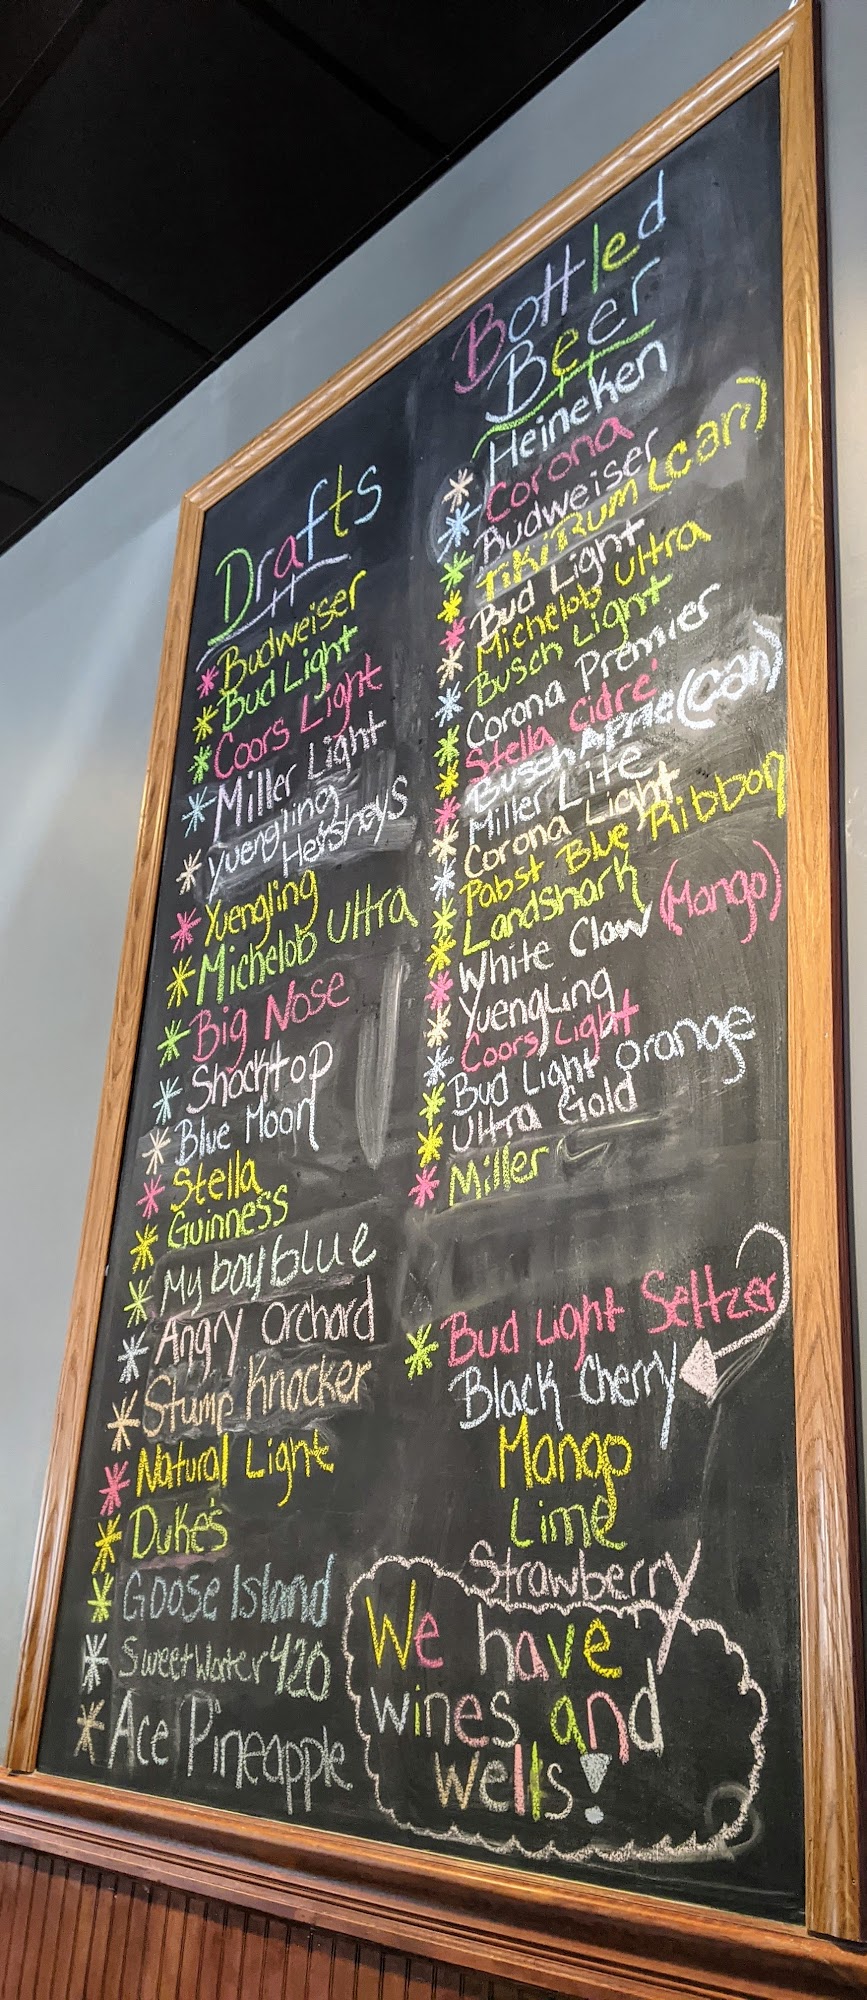 Drafts
Budweiser
Bud Light
Coors Light
Miller Light
Yuengling
Hersheys
Yuengling
Michelob Ultra
Big Nose
Shocktop
Blue Moon
Stella
Guinness
My boy blue
Angry Orchard
Stump Knocker
Natural Light
Duke's
Goose Island
Sweet Water 420
Ace Pineapple
Bottled
Beer
Heineken
Corona
Budweiser
Tiki Rum (can)
Bud Light
Michelob Ultra
Busch Light
Corona Premier
Stella Cidre
Busch Apple (can)
Miller Lite
Corona Light
Pabst Blue Ribbon
Landshark
White Claw (Mango)
Yuengling
Coors Light
Bud Light Orange
Ultra Gold
Miller
Bud Light Seltzer
Black Cherry
Mango
Lime
Strawberry
We have
wines and
wells!